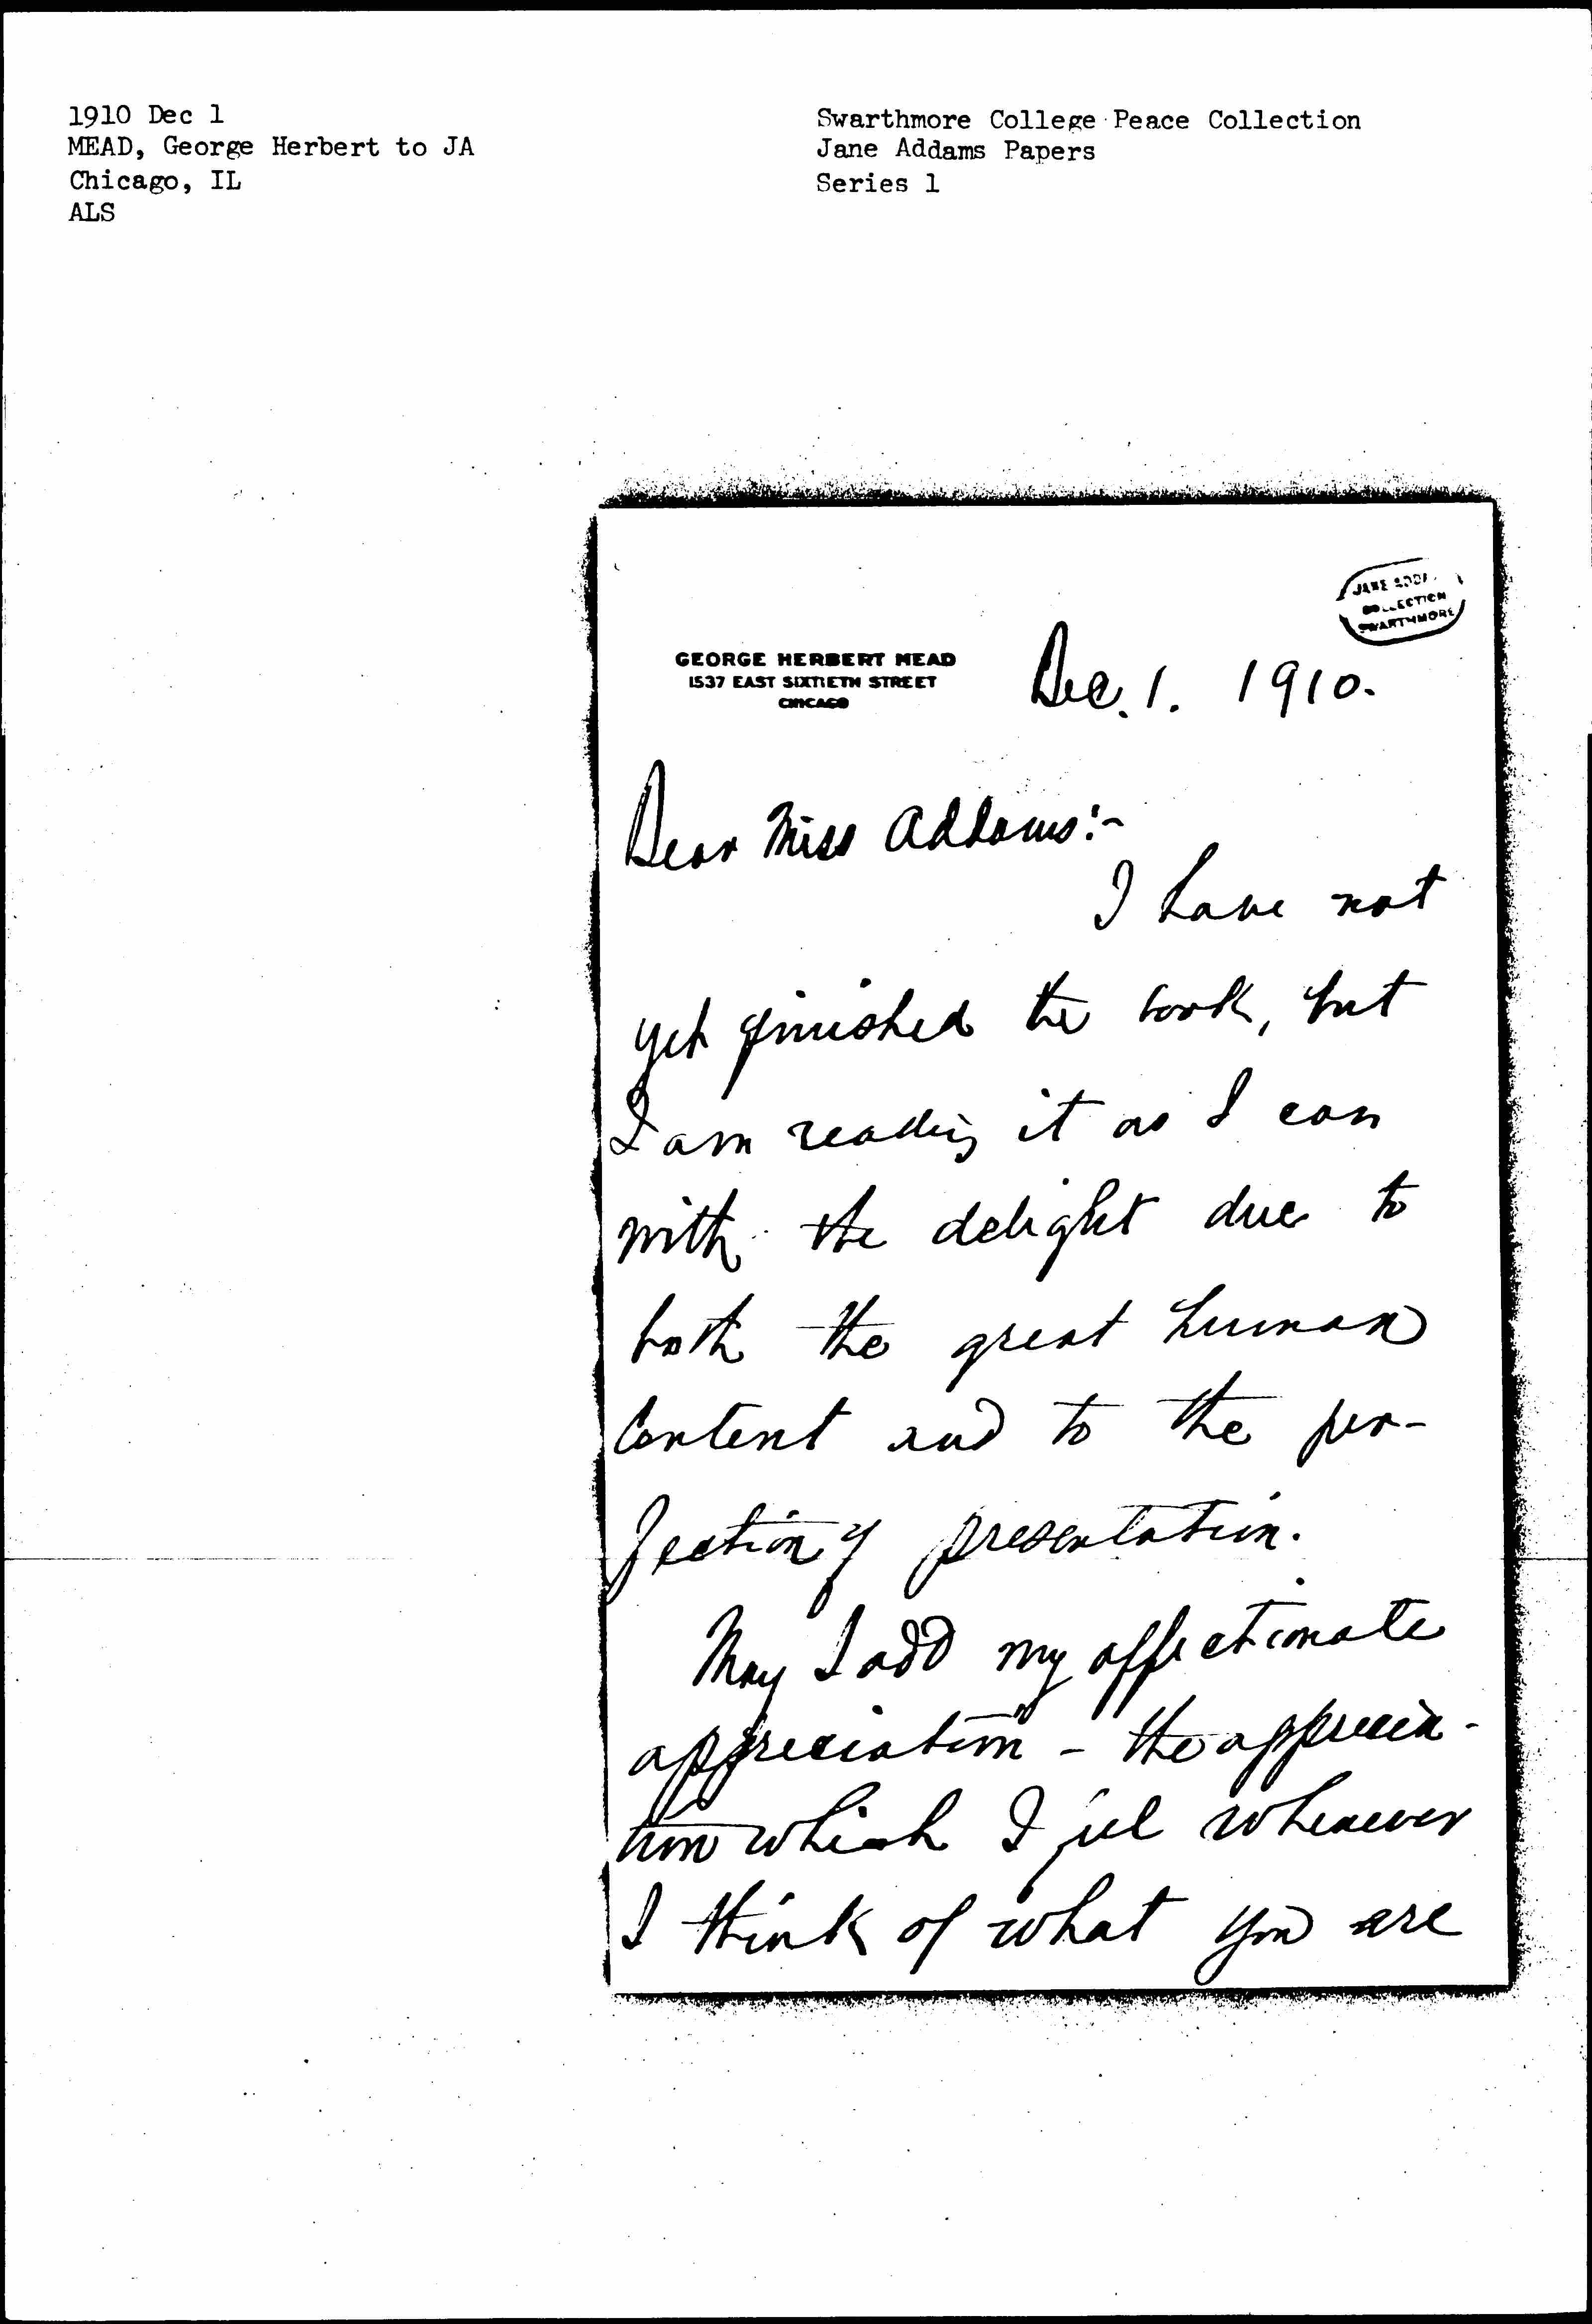 1910 Dec 1
MEAD, George Herbert to JA
Chicago, IL
ALS
Swarthmore College Peace Collection
Jane Addams Papers
Series 1
JANE ADDA
COLLECTION
SWARTHMORE
GEORGE HERBERT MEAD
1537 EAST SIXTIETH STREET
CHICAGO
Dec. 1. 1910.
Dear Miss Addams:-
I have not
yet finished the book, but
I am reading it as I can
with the delight due to
both the great human
Content and to the per-
fection of presentation.
May I add my affectionate
appreciation - the apprecia-
tion which I feel whenever
I think of what you are